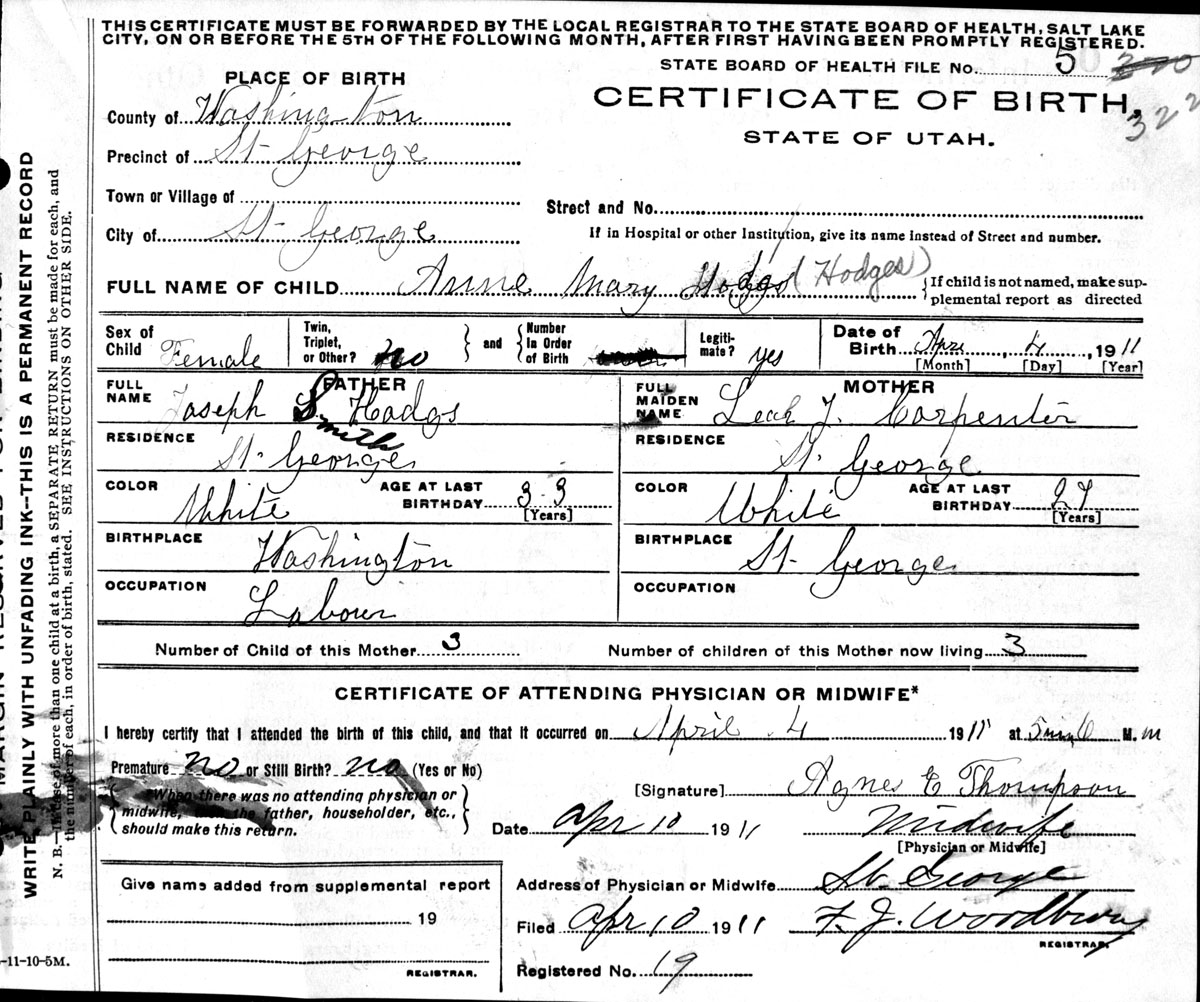 THIS CERTIFICATE MUST BE FORWARDED BY THE LOCAL REGISTRAR TO THE STATE BOARD OF HEALTH, SALT LAKE
CITY, ON OR BEFORE THE 5TH OF THE FOLLOWING MONTH, AFTER FIRST HAVING BEEN PROMPTLY REGISTERED.
STATE BOARD OF HEALTH FILE No. 50
322
PLACE OF BIRTH
CERTIFICATE OF BIRTH,
STATE OF UTAH.
County of Washington
Precinct of St George
Town or Village of
Street and No.
City of St George
If in Hospital or other Institution, give its name instead of Street and number.
FULL NAME OF CHILD Anne Mary Hodgs (Hodges)
{If child is not named, make sup-
plemental report as directed
Sex of Child Female
Twin, Triplet, or Other? no
and
Number In Order of Birth
Legiti-mate? yes
Date of Birth Apr 4, 1911
[Month] [Day] [Year]
FATHER
FULL NAME Joseph S. Hodgs
Smith
RESIDENCE St. George
COLOR White
AGE AT LAST BIRTHDAY 33 [Years]
BIRTHPLACE Washington
OCCUPATION Labour
MOTHER
FULL MAIDEN NAME Leah J. Carpenter
RESIDENCE St. George
COLOR White
AGE AT LAST BIRTHDAY [Years]
BIRTHPLACE St George
OCCUPATION
Number of Child of this Mother 3
Number of children of this Mother now living 3
CERTIFICATE OF ATTENDING PHYSICIAN OR MIDWIFE*
I hereby certify that I attended the birth of this child, and that it occurred on April 4 1911 at M. m
Premature no or Still Birth? no (Yes or No)
{When there was no attending physician or
midwife, the father, householder, etc.,
should make this return.}
[Signature] Agnes E Thompson
Date apr 10 1911
Midwife
[Physician or Midwife]
Address of Physician or Midwife St. George
Filed apr 10 1911 F. J. Woodbury
REGISTRAR.
Registered No. 19
Give name added from supplemental report
19
REGISTRAR.
-11-10-5M.
WRITE PLAINLY WITH UNFADING INK—THIS IS A PERMANENT RECORD
N. B.—In case of more than one child at a birth, a SEPARATE RETURN must be made for each, and
the number of each, in order of birth, stated. SEE INSTRUCTIONS ON OTHER SIDE.